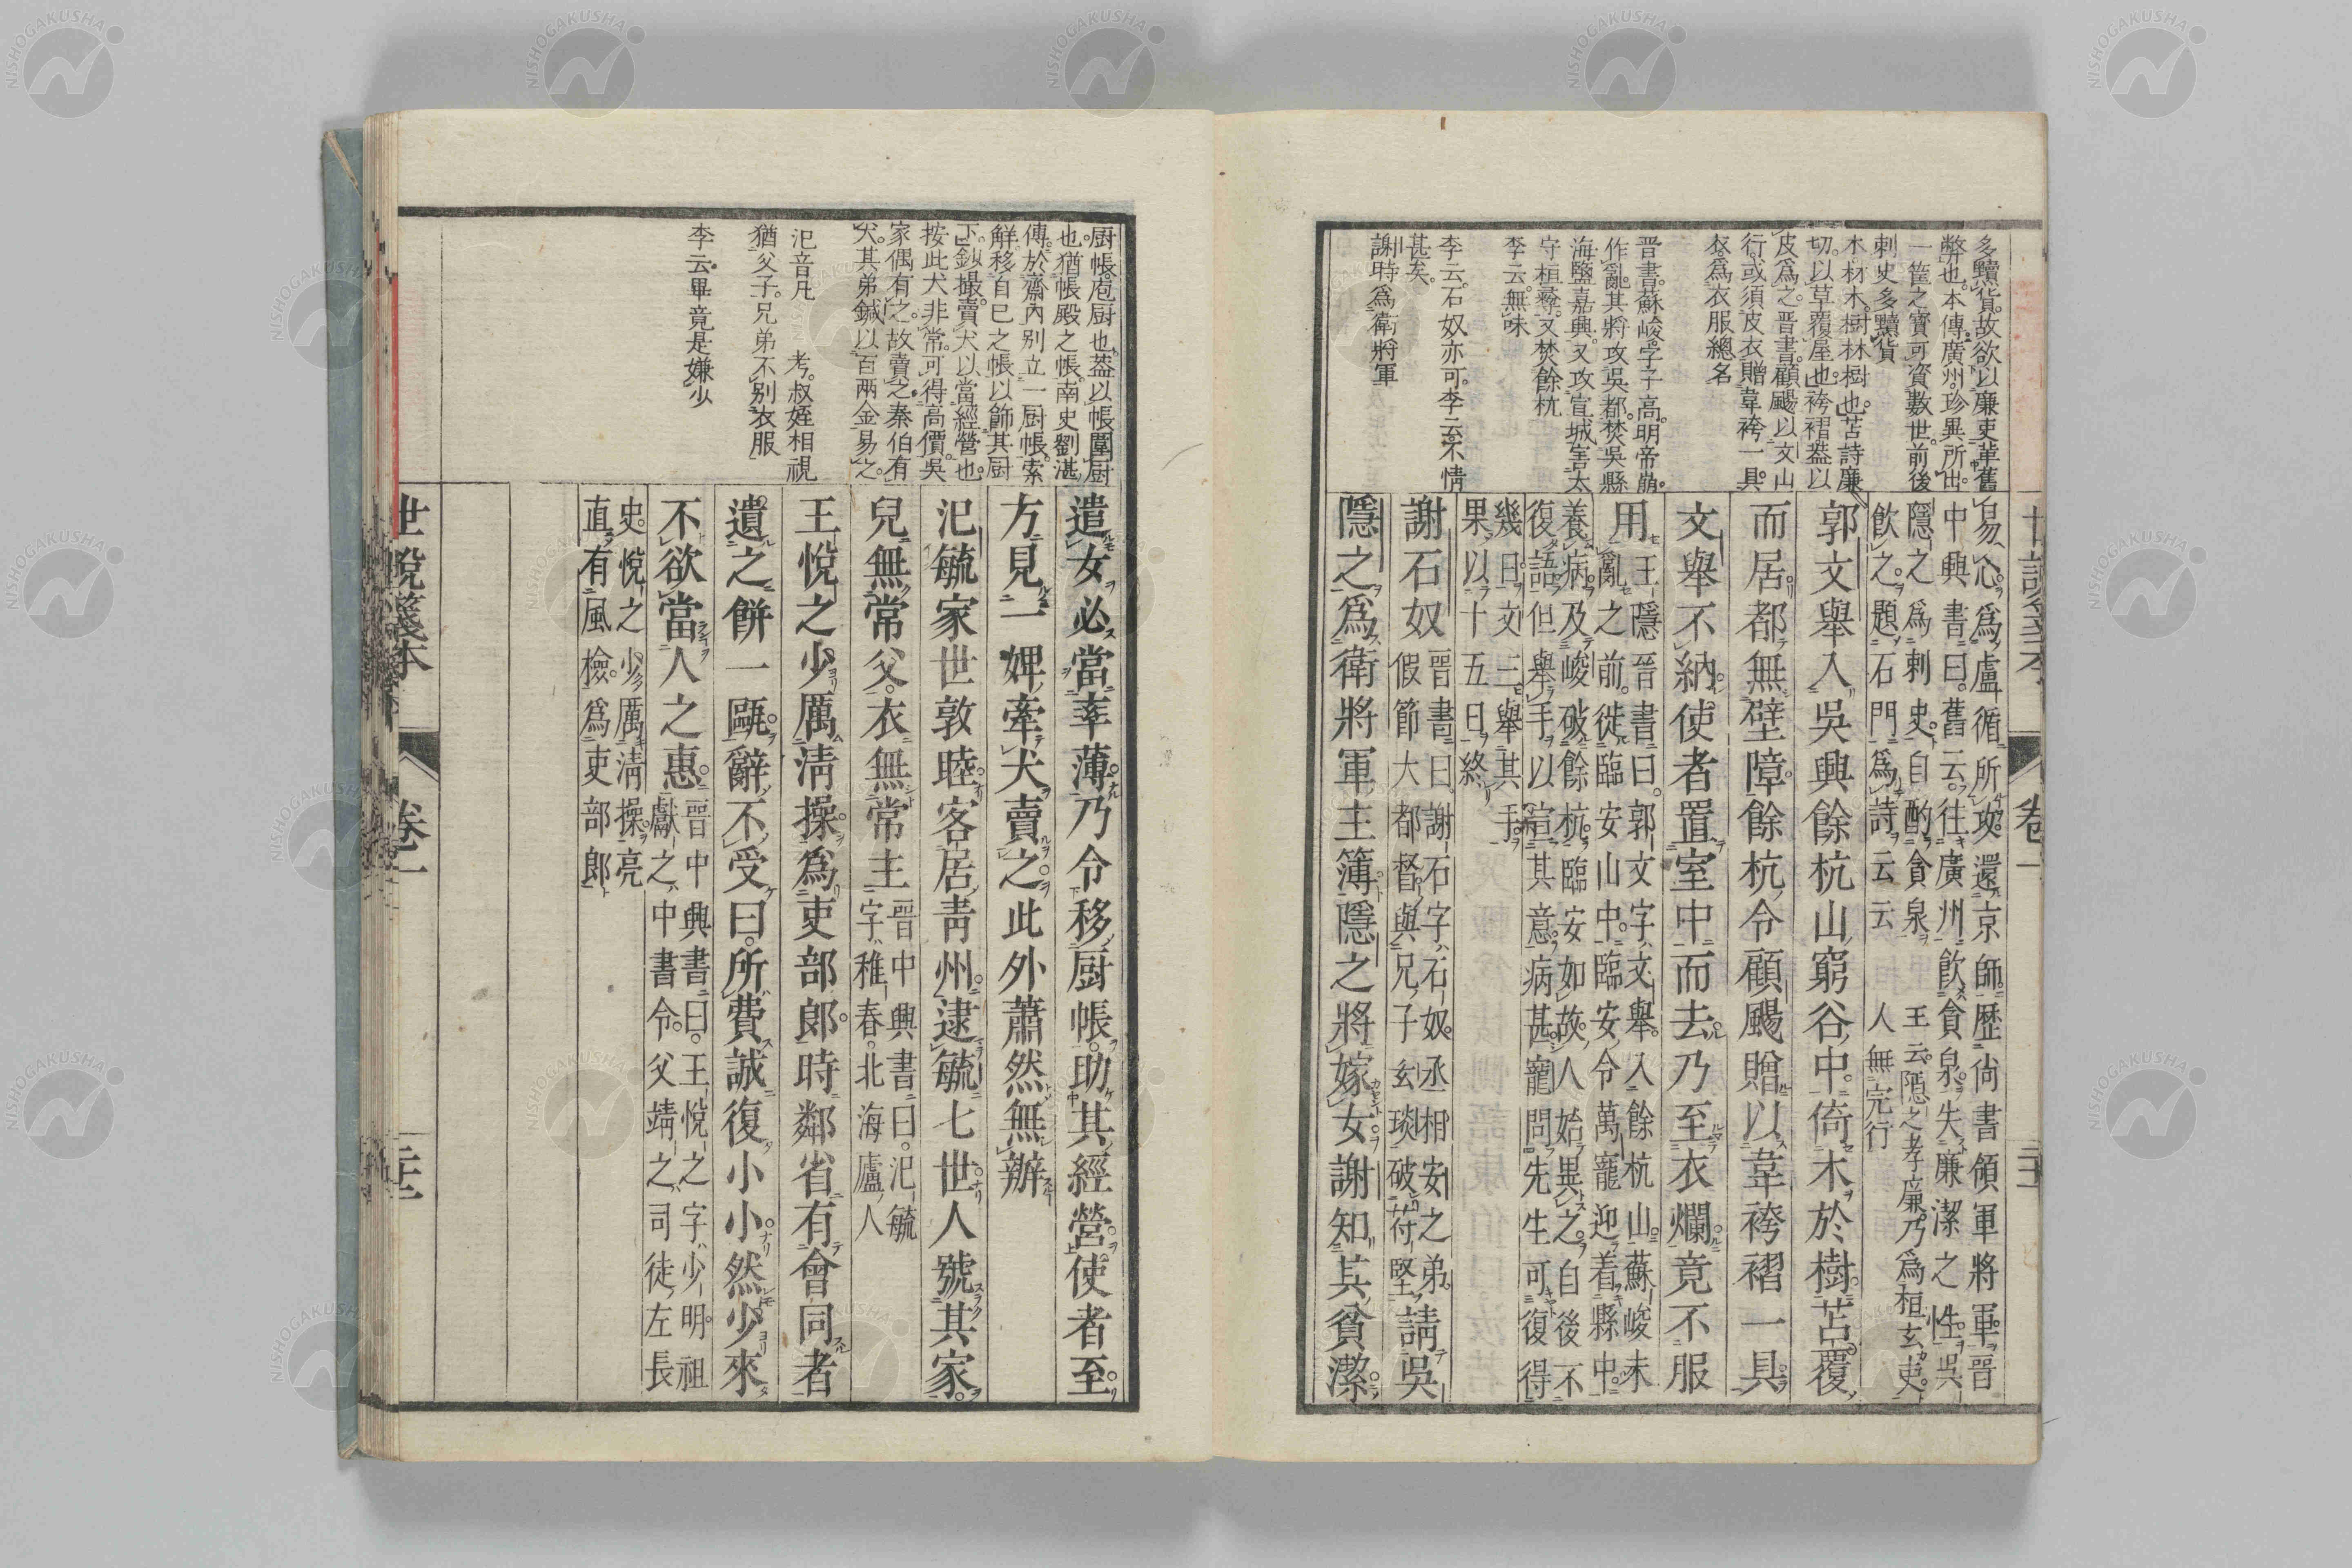 多黷貨故欲以廉吏革舊
弊也本傳廣州珍異所出
一筐之寶可資數世前後
刺史多黷貨
木材木樹林樹也苫詩廉
切以草覆屋也袴褶葢以
皮爲之晋書顧颺以文山
行或須皮衣贈韋袴一具
衣爲衣服總名
晋書蘇峻字子高明帝崩
作亂其將攻吳都焚吳縣
海鹽嘉興又攻宣城害太
守桓彞又焚餘杭
李云無味
李云石奴亦可李云不情
甚矣
謝時爲衛將軍
易心爲盧循所攻還京師歷尙書領軍將軍晋
中興書曰舊云往廣州飮貪泉失廉潔之性吳
隱之爲刺史自酌貪泉 王云隱之孝廉乃爲桓玄吏
飮之題石門爲詩云云 人無完行
郭文舉入吳興餘杭山窮谷中倚木於樹苫覆
而居都無壁障餘杭令顧颺贈以韋袴褶一具
文舉不納使者置室中而去乃至衣爛竟不服
用王隱晉書曰郭文字文舉入餘杭山蘇峻未
亂之前徙臨安山中臨安令萬寵迎着縣中
養病及峻破餘杭臨安如故人始異之自後不
復語但舉手以宣其意病甚寵問先生可復得
幾日文三舉其手
果以十五日終
謝石奴晉書曰謝石字石奴丞相安之弟
假節大都督與兄子玄琰破苻堅請吳
隱之爲衛將軍主簿隱之將嫁女謝知其貧潔
世說箋本 卷一
厨帳庖厨也葢以帳圍厨
也猶帳殿之帳南史劉湛
傳於齋內别立一厨帳索
觧移自已之帳以飾其厨
下鈔撮賣犬以當經營也
按此犬非常可得高價吳
家偶有之故賣之秦伯有
犬其弟鍼以百兩金易之
汜音凡 考叔姪相視
猶父子兄弟不別衣服
李云畢竟是嫌少
遣女必當率薄乃令移厨帳助其經營使者至
方見一婢牽犬賣之此外蕭然無辦
汜毓家世敦睦客居靑州逮毓七世人號其家
兒無常父衣無常主晋中興書曰汜毓
字稚春北海廬人
王悅之少厲淸操爲吏部郞時鄰省有會同者
遺之餅一甌辭不受曰所費誠復小小然少來
不欲當人之惠晋中興書曰王悅之字少明祖
獻之中書令父靖之司徒左長
史悅之少厲淸操亮
直有風檢爲吏部郞
世說箋本 卷一